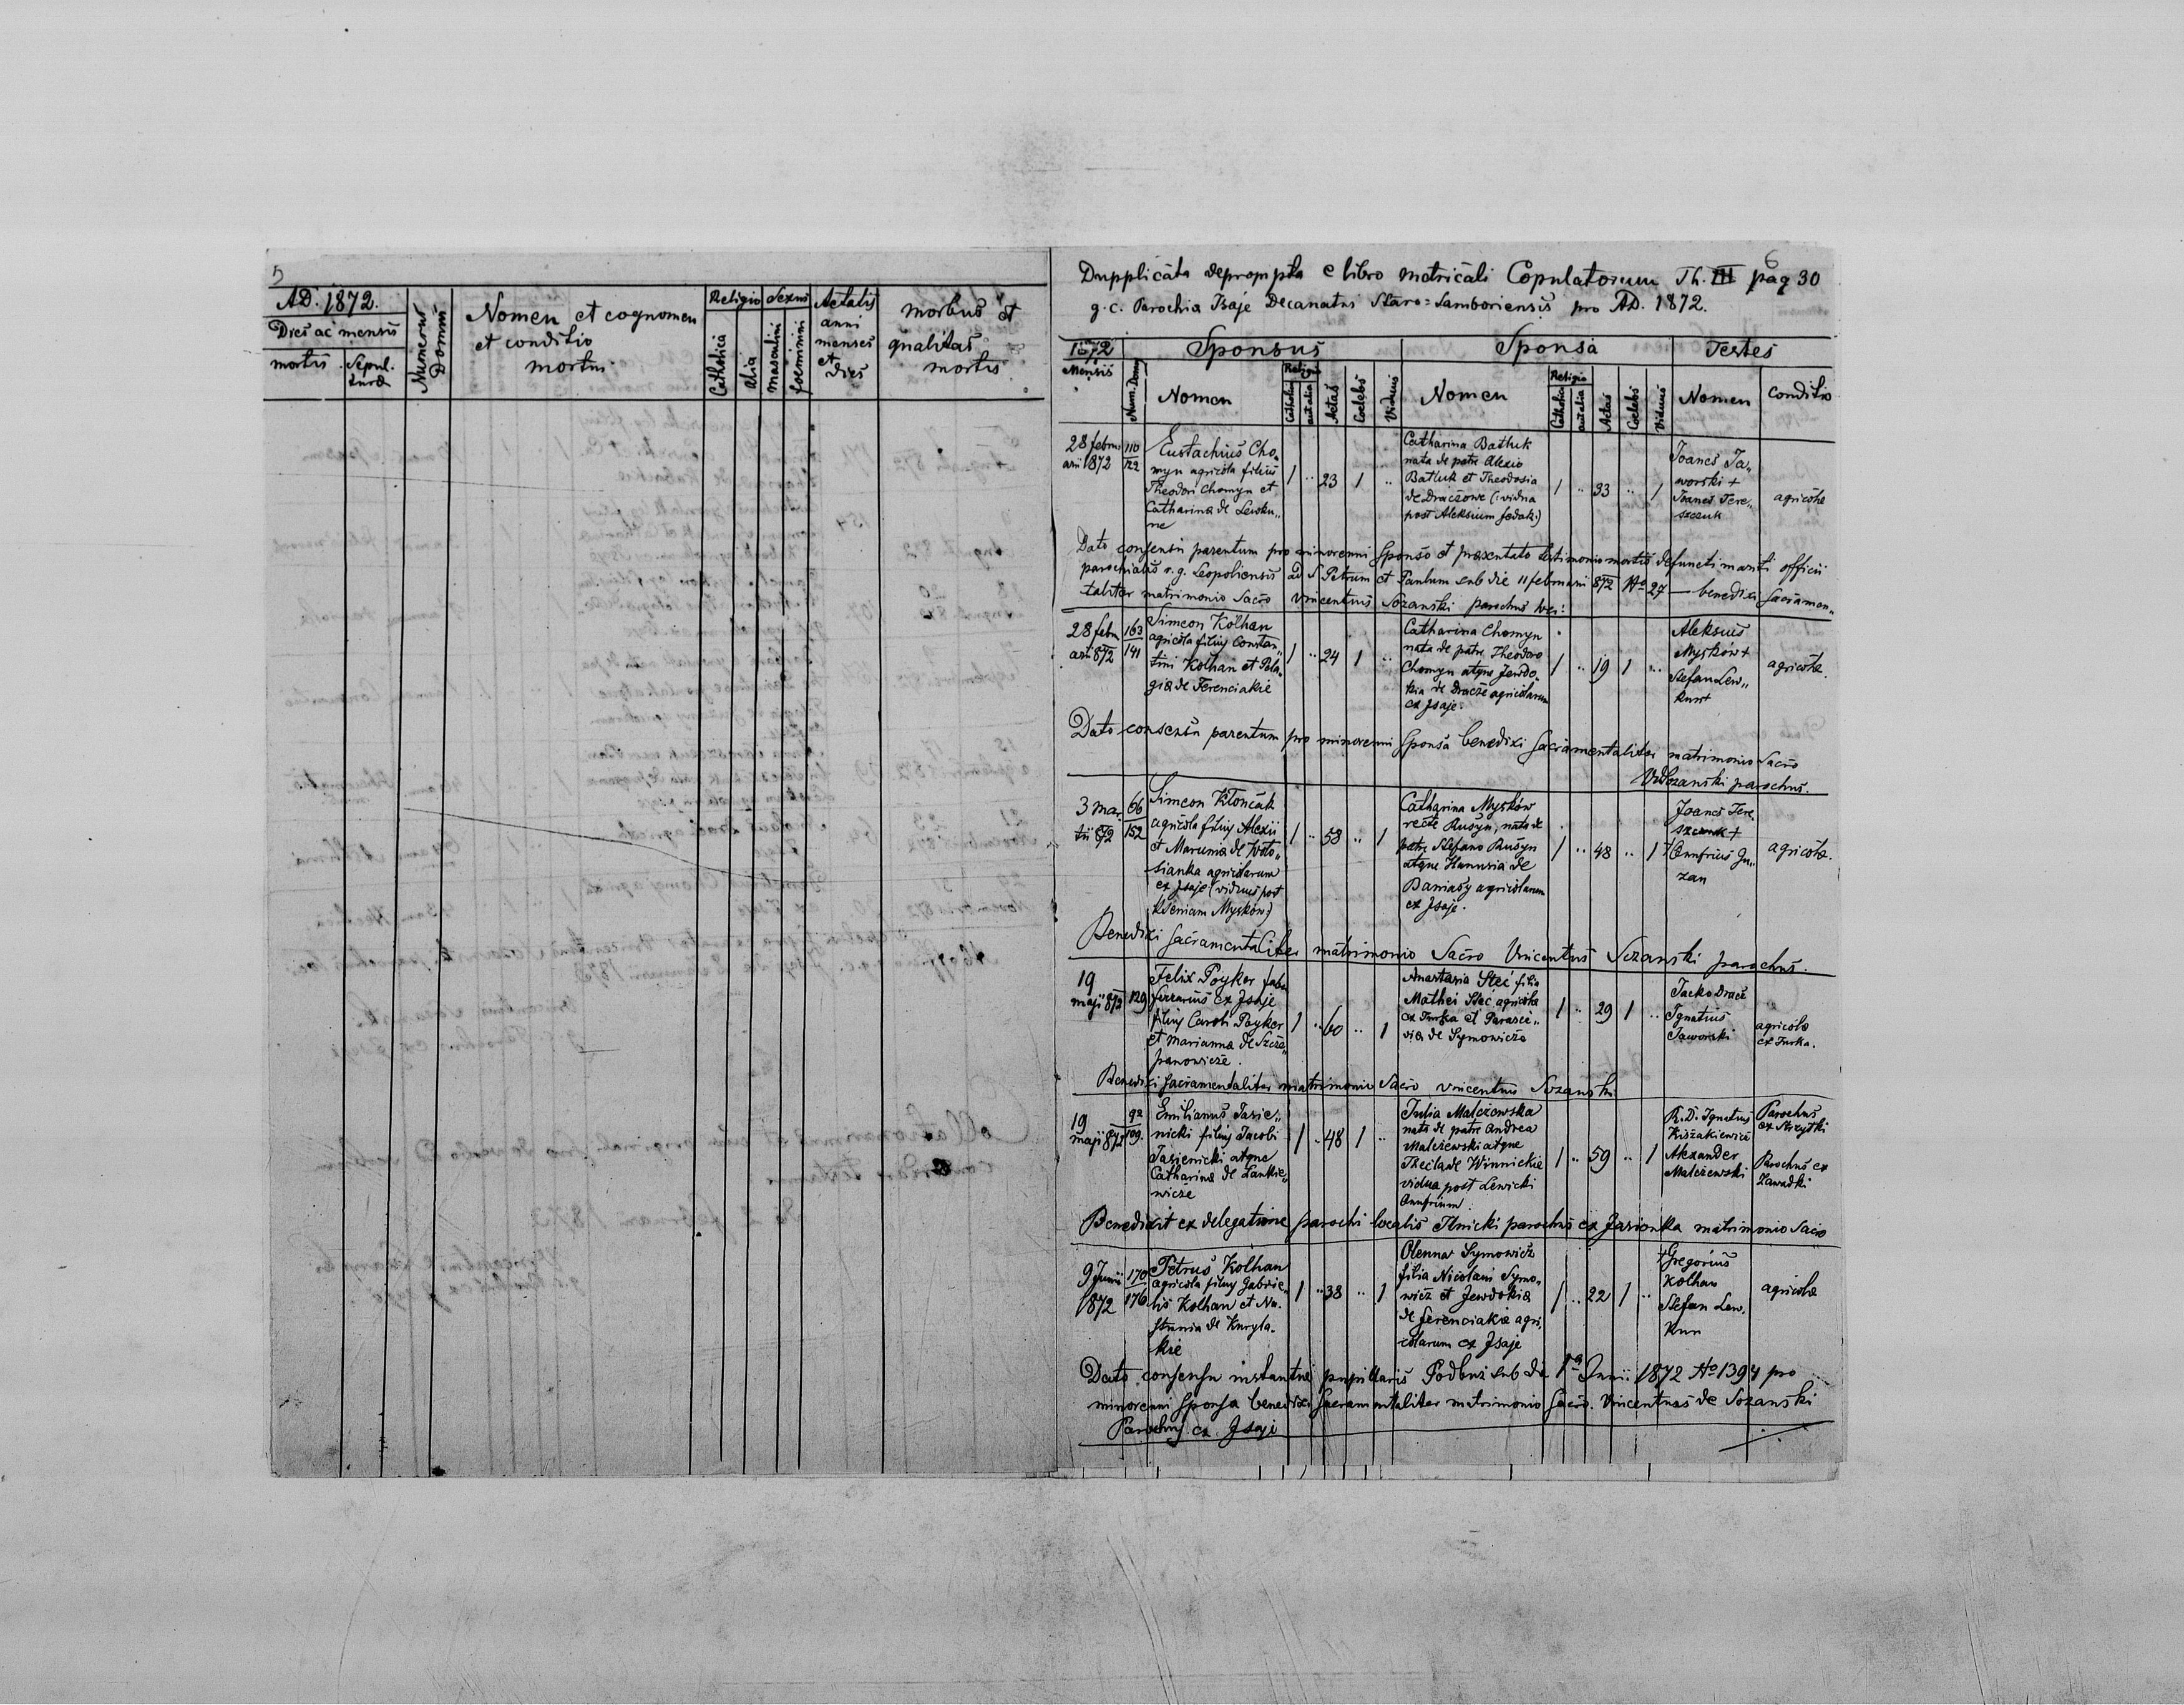 5
AD. 1872.
Dies ac mensis
mortis
Sepul-
turæ
Numerus Domus
Nomen et cognomen
et conditio
mortui
Religio
Catholica
alia
Sexus
masculini
foeminini
Aetatis
anni
menses
et
dies
morbus et
qualitas
mortis
6
Dupplicata deprompta e libro metricali Copulatorum Th. III pag 30
g. c. Parochia Isaje Decanatus Staro=Samboriensis pro AD. 1872.
1872
Mensis
Sponsus
Sponsa
Testes
Num. Domus
Nomen
Religio
Catholica
aut alia
Aetas
Coelebs
Viduus
Nomen
Religio
Catholica
aut alia
Aetas
Coelebs
Viduus
Nomen
conditio
28 febru
arii 1872
110
122
Eustachius Cho„
myn agricola filius
Theodori Chomyn et
Catharina de Lewku„
ne
1 .. 23 1 ..
Catharina Batluk
nata de patre Alexio
Batluk et Theodosia
de Draczowe (: vidua
post Aleksium fedak :)
1 .. 33 .. 1
Joanes Ja„
worski +
Joanes Tere„
szczuk
agricolæ
Dato consensu parentum pro minorenni Sponso et præsentato testimonio mortis defuncti mariti officii
parochialis r. g. Leopoliensis ad S Petrum et Paulum sub die 11 februarii 872 No 27 — benedixi Sacramen„
taliter matrimonio Sacro Vincentius Sozanski parochus loci:
28 febru
arii 872
163
141
Simeon Kolhan
agricola filius Constan„
tini Kolhan et Pela„
gia de Ferenciakie
1 .. 24 1 ..
Catharina Chomyn
nata de patre Theodoro
Chomyn atque Jewdo„
kia de Dracze agricolarum
ex Jsaje.
1 .. 19 1 ..
Aleksius
Myśków +
Stefan Lew„
kun +
agricolæ.
Dato consensu parentum pro minorenni Sponsa benedixi Sacramentaliter matrimonio Sacro
Sozanski parochus.
3 mar.
tii 872
66
152
Simeon Klonćak
agricola filius Alexii
et Marunia de Woto„
sianka agricolarum
ex Jsaje (viduus post
Kseniam Myśków)
1 .. 58 .. 1
Catharina Myśków
recte Rusyn, nata de
patre Stefano Rusyn
atque Hanusia de
Baniasy agricolarum
ex Jsaje.
1 .. 48 .. 1
Joanes Tere
szczuk +
+ Onufrius Gu„
zan
agricolæ.
Benedixi Sacramentaliter matrimonio Sacro Vincentius Sozanski parochus.
19
maji 872
129
Felix Poyker fabu
ferrarius ex Jsaje
filius Caroli Poyker
et Marianna de Szcze„
panowicze.
1 .. 60 .. 1
Anastasia Steć filia
Mathei Steć agricola
ex Turka et Parasce„
via de Symowicze
1 .. 29 1 ..
Jacko Dracz
Ignatius
Jaworski
agricolæ
ex Turka.
Benedixi Sacramentaliter matrimonio Sacro Vincentius Sozanski
19
maji 872
92
109.
Emilianus Jasie„
nicki filius Jacobi
Jasienicki atque
Catharina de Lankie„
wicze
1 .. 48 1 ..
Julia Malczewska
nata de patre Andrea
Malczewski atque
Thecla de Winnickie
vidua post Lewicki
Onufrium.
1 .. 59 .. 1
R. D. Ignatus
Kiszakiewicz
Alexander
Malczewski
Parochus
ex Strzyłki
Parochus ex
Zawadki
Benedixit ex delegatione parochi localis Ilnicki parochus ex Jasionka matrimonio Sacro
9 Junii
1872
170
176
Petrus Kolhan
agricola filius Gabrie„
lis Kolhan et Na„
stunia de Kuryla„
kie
1 .. 38 .. 1
Olenna Symowicz
filia Nicolaui Symo„
wicz et Jewdokia
de ferenciakie agri„
colarum ex Jsaje
1 .. 22 1 ..
+ Gregorius
Kolhan
Stefan Lew.
kun
agricolæ
Dato consensu instantiæ pupillaris Podbuż sub die 1a Junii 1872 No 1394 pro
minorenni Sponsa benedixi Sacramentaliter matrimonio Sacro. Vincentius de Sozanski
Parochus ex Jsaje